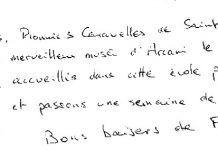 Pionniers Caravelles de Saint
merveilleux musée d'Arcani le
accueillis dans cette école
et passons une semaine de
Bons baisers de F